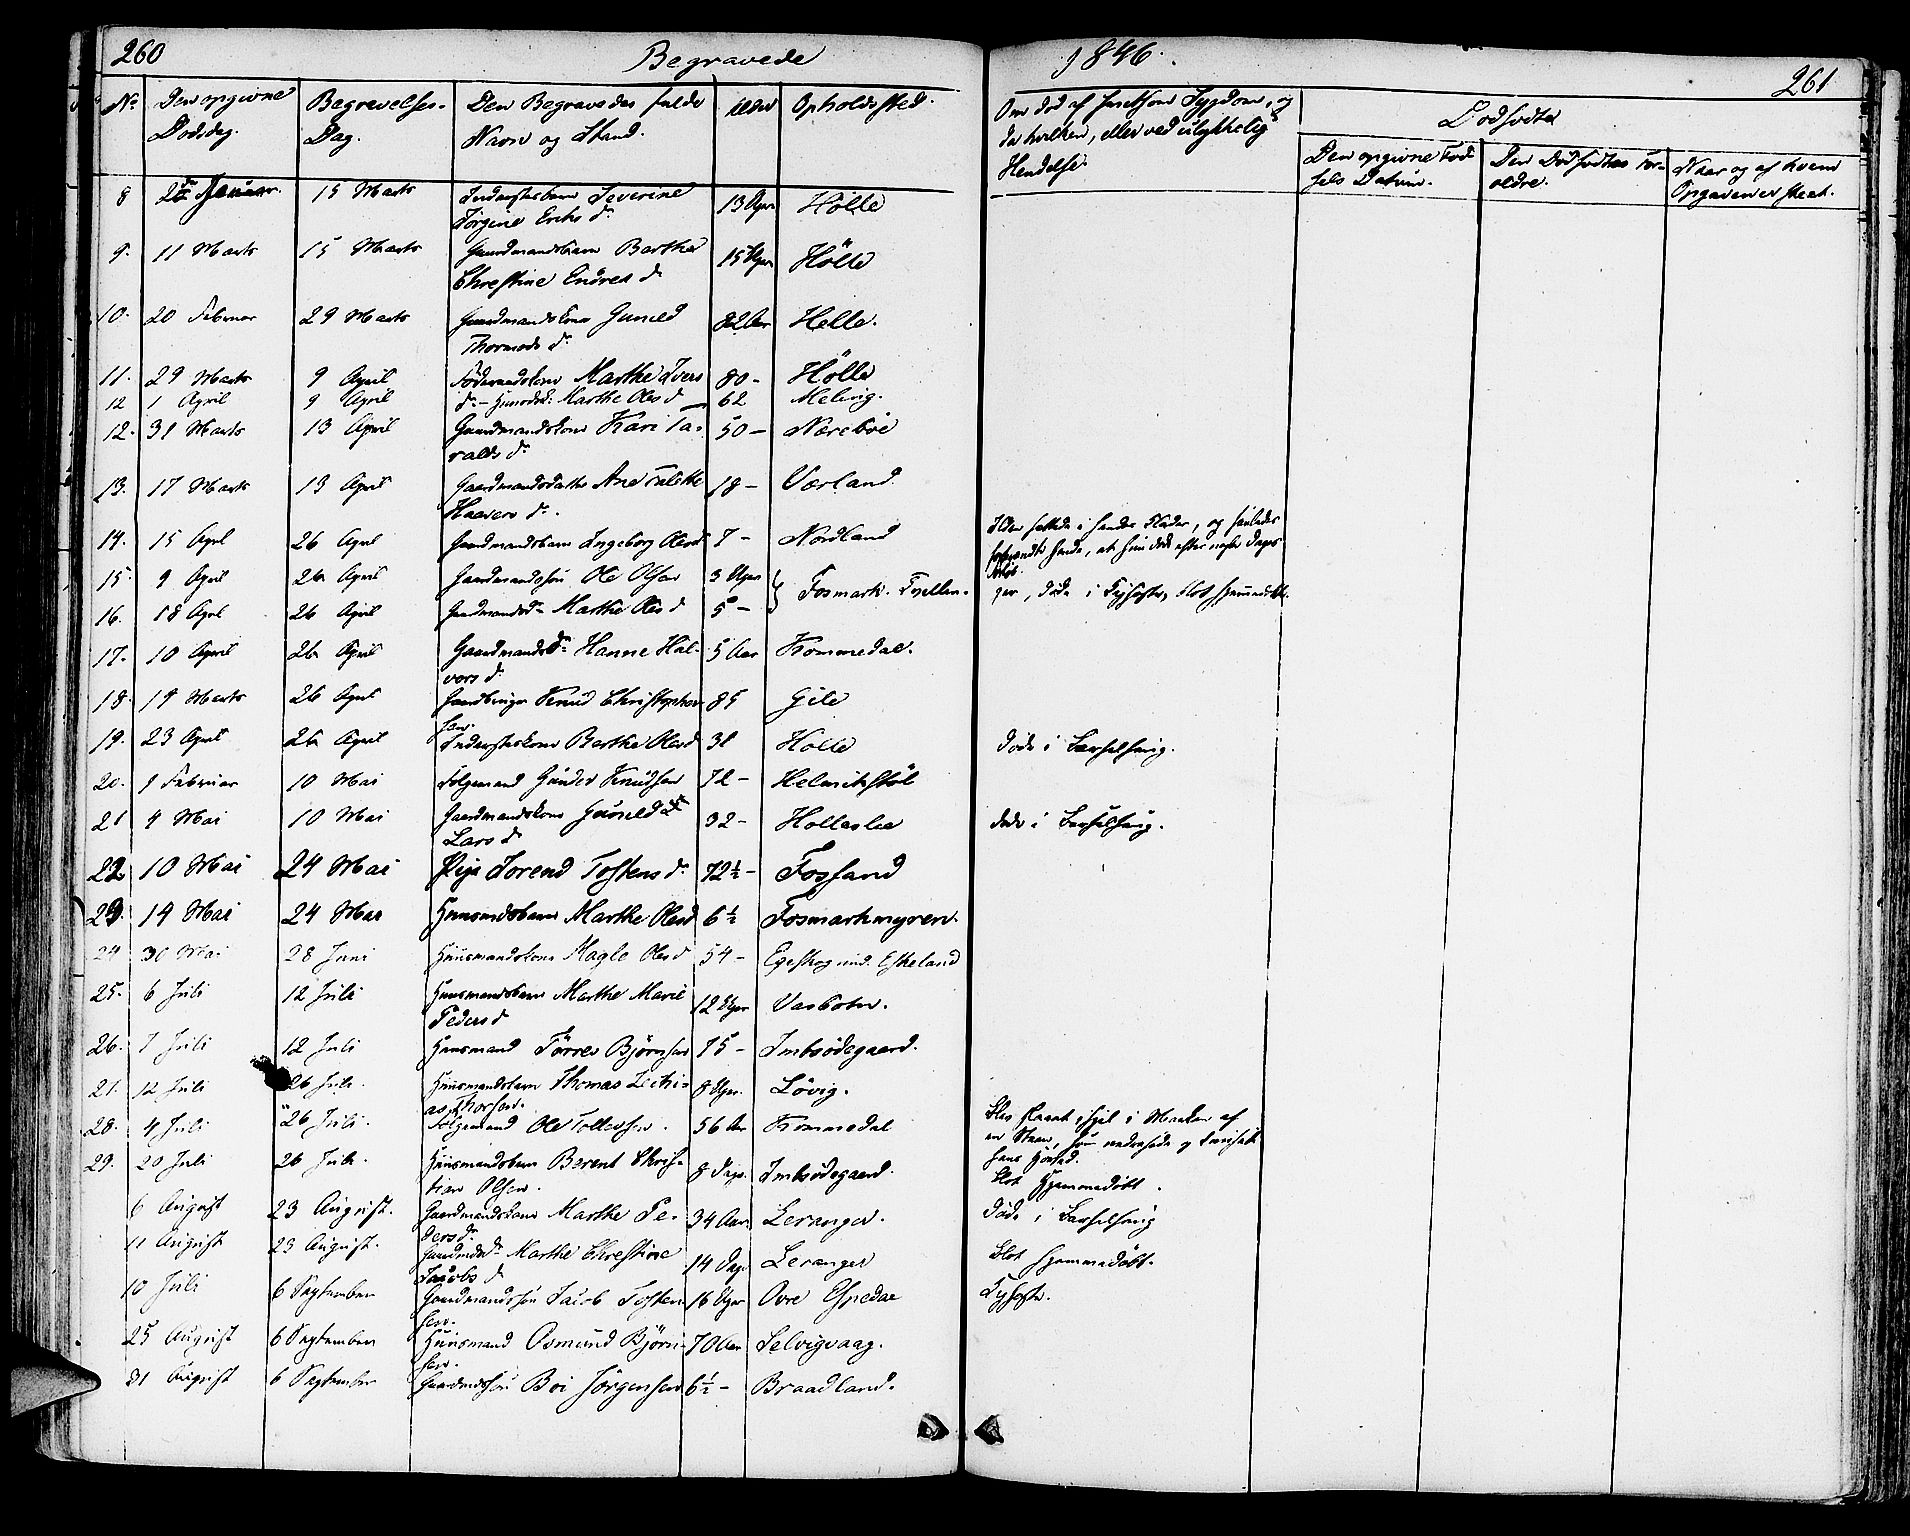 260 Begravede 1846. 261
No Den opgivne Dødsdag. Begravelses-Dag. Den Begravedes fulde Navn og Stand. Alder Opholdssted. Om død af Sygdom, og da hvilken, eller ved ulykkelig Hendelse. Dødfødte
Den opgivne Fødsels Datum. Den Dødfødtes Forældre. Naar og af hvem Opgaven er skeet.
8 26 Januar. 15 Marts Inderstesbarn Severine
Jørgine Eriks d. 13 Uger Hølle
9. 11 Marts 15 Marts Gaardmandsbarn Berthe
Chrestine Endres d. 15 Uger Hølle
10. 20 Februar 29 Marts Gaardmandskone Guneld
Thormods d. 82 Aar Helle.
11. 29 Marts 9 April Føderaadskone Marthe Ivers 80 - Hølle
12 1 April 9 April d. - Marthe Olesd 62 Meling.
12. 31 Marts 13 April Gaardmandskone Kari Ta-
ralds d. 50 - Nærebøe
13. 17 Marts 13 April Gaardmandsdatter Ane Malethe
Haavers d. 18 - Værland
14. 15 April 26 April Gaardmandsbarn Ingeborg Olesd 7 - Nordland Ilden fattede i hendes Klæder, og saaledes
forbrændte hende, at hun døde efter næste Dages
15. 9 April 26 April Gaardmandssøn Ole Olsen 3 Uger Fosmark. døde i blot hjemmedøbt.
16. 18 April 26 April Gaardmandsd. Marthe Olesd 5 -
17. 10 April 26 April Gaardmandsd. Hanne Hal-
vors d 5 Aar Kommedal.
18. 14 Marts 26 April Knud Christopher-
sen. 85 Gile
19. 23 April 26 April Inderstekone Berthe Olesd 31 Hølle døde i Barselseng.
20. 9 Februar 10 Mai Følgemand Gunder Knudsen 72 - Helmikstøl
21 4 Mai 10 Mai Gaardmandskone Guneld
Lars d 32 - Hølleslie døde i Barselseng.
22 10 Mai 24 Mai Pige Sorend Tostens d. 72½ - Fossand
23. 14 Mai 24 Mai Huusmandsbarn Marthe Olesd 6½ Fosmarkmyren.
24 30 Mai 28 Juni Huusmandskone Magle Olesd 54 - Egeskog und. Eskeland
25. 6 Juli 12 Juli Huusmandsbarn Marthe Marie
Peders d 12 Uger Vasbotn.
26. 7 Juli 12 Juli Huusmand Tørres Bjørnsen 75 - Imbsødegaard.
27. 12 Juli 26 Juli. Huusmandsbarn Thomas
Thorsen. 8 Uger. Løvig.
28. 4 Juli 26 Juli. Følgemand Ole Tollevsen. 56 Aar Kommedal Blev i Marken af
en Steen, som nedrasede og
hans Hoved.
29. 20 Juli 26 Juli. Huusmandsbarn Berent Chris-
tian Olsen. 8 Dage. Imbsødegaard. blot Hjemmedøbt.
6 August 23 August. Gaardmandskone Marthe Pe-
ders d. 34 Aar. Leranger. døde i Barselseng
11 August 23 August. Marthe Chrestine
Jacobs d 14 Dage Leranger blot hjemmedøbt.
10 Juli 6 September Gaardmandssøn Jacob Tosten-
sen. 16 Uger Øvre Espedal
25 August 6 September Huusmand Osmund Bjørn-
sen. 70 Aar Selvigvaag.
31 August 6 September Gaardmandssøn Boi Jørgensen 6½ - Braadland.